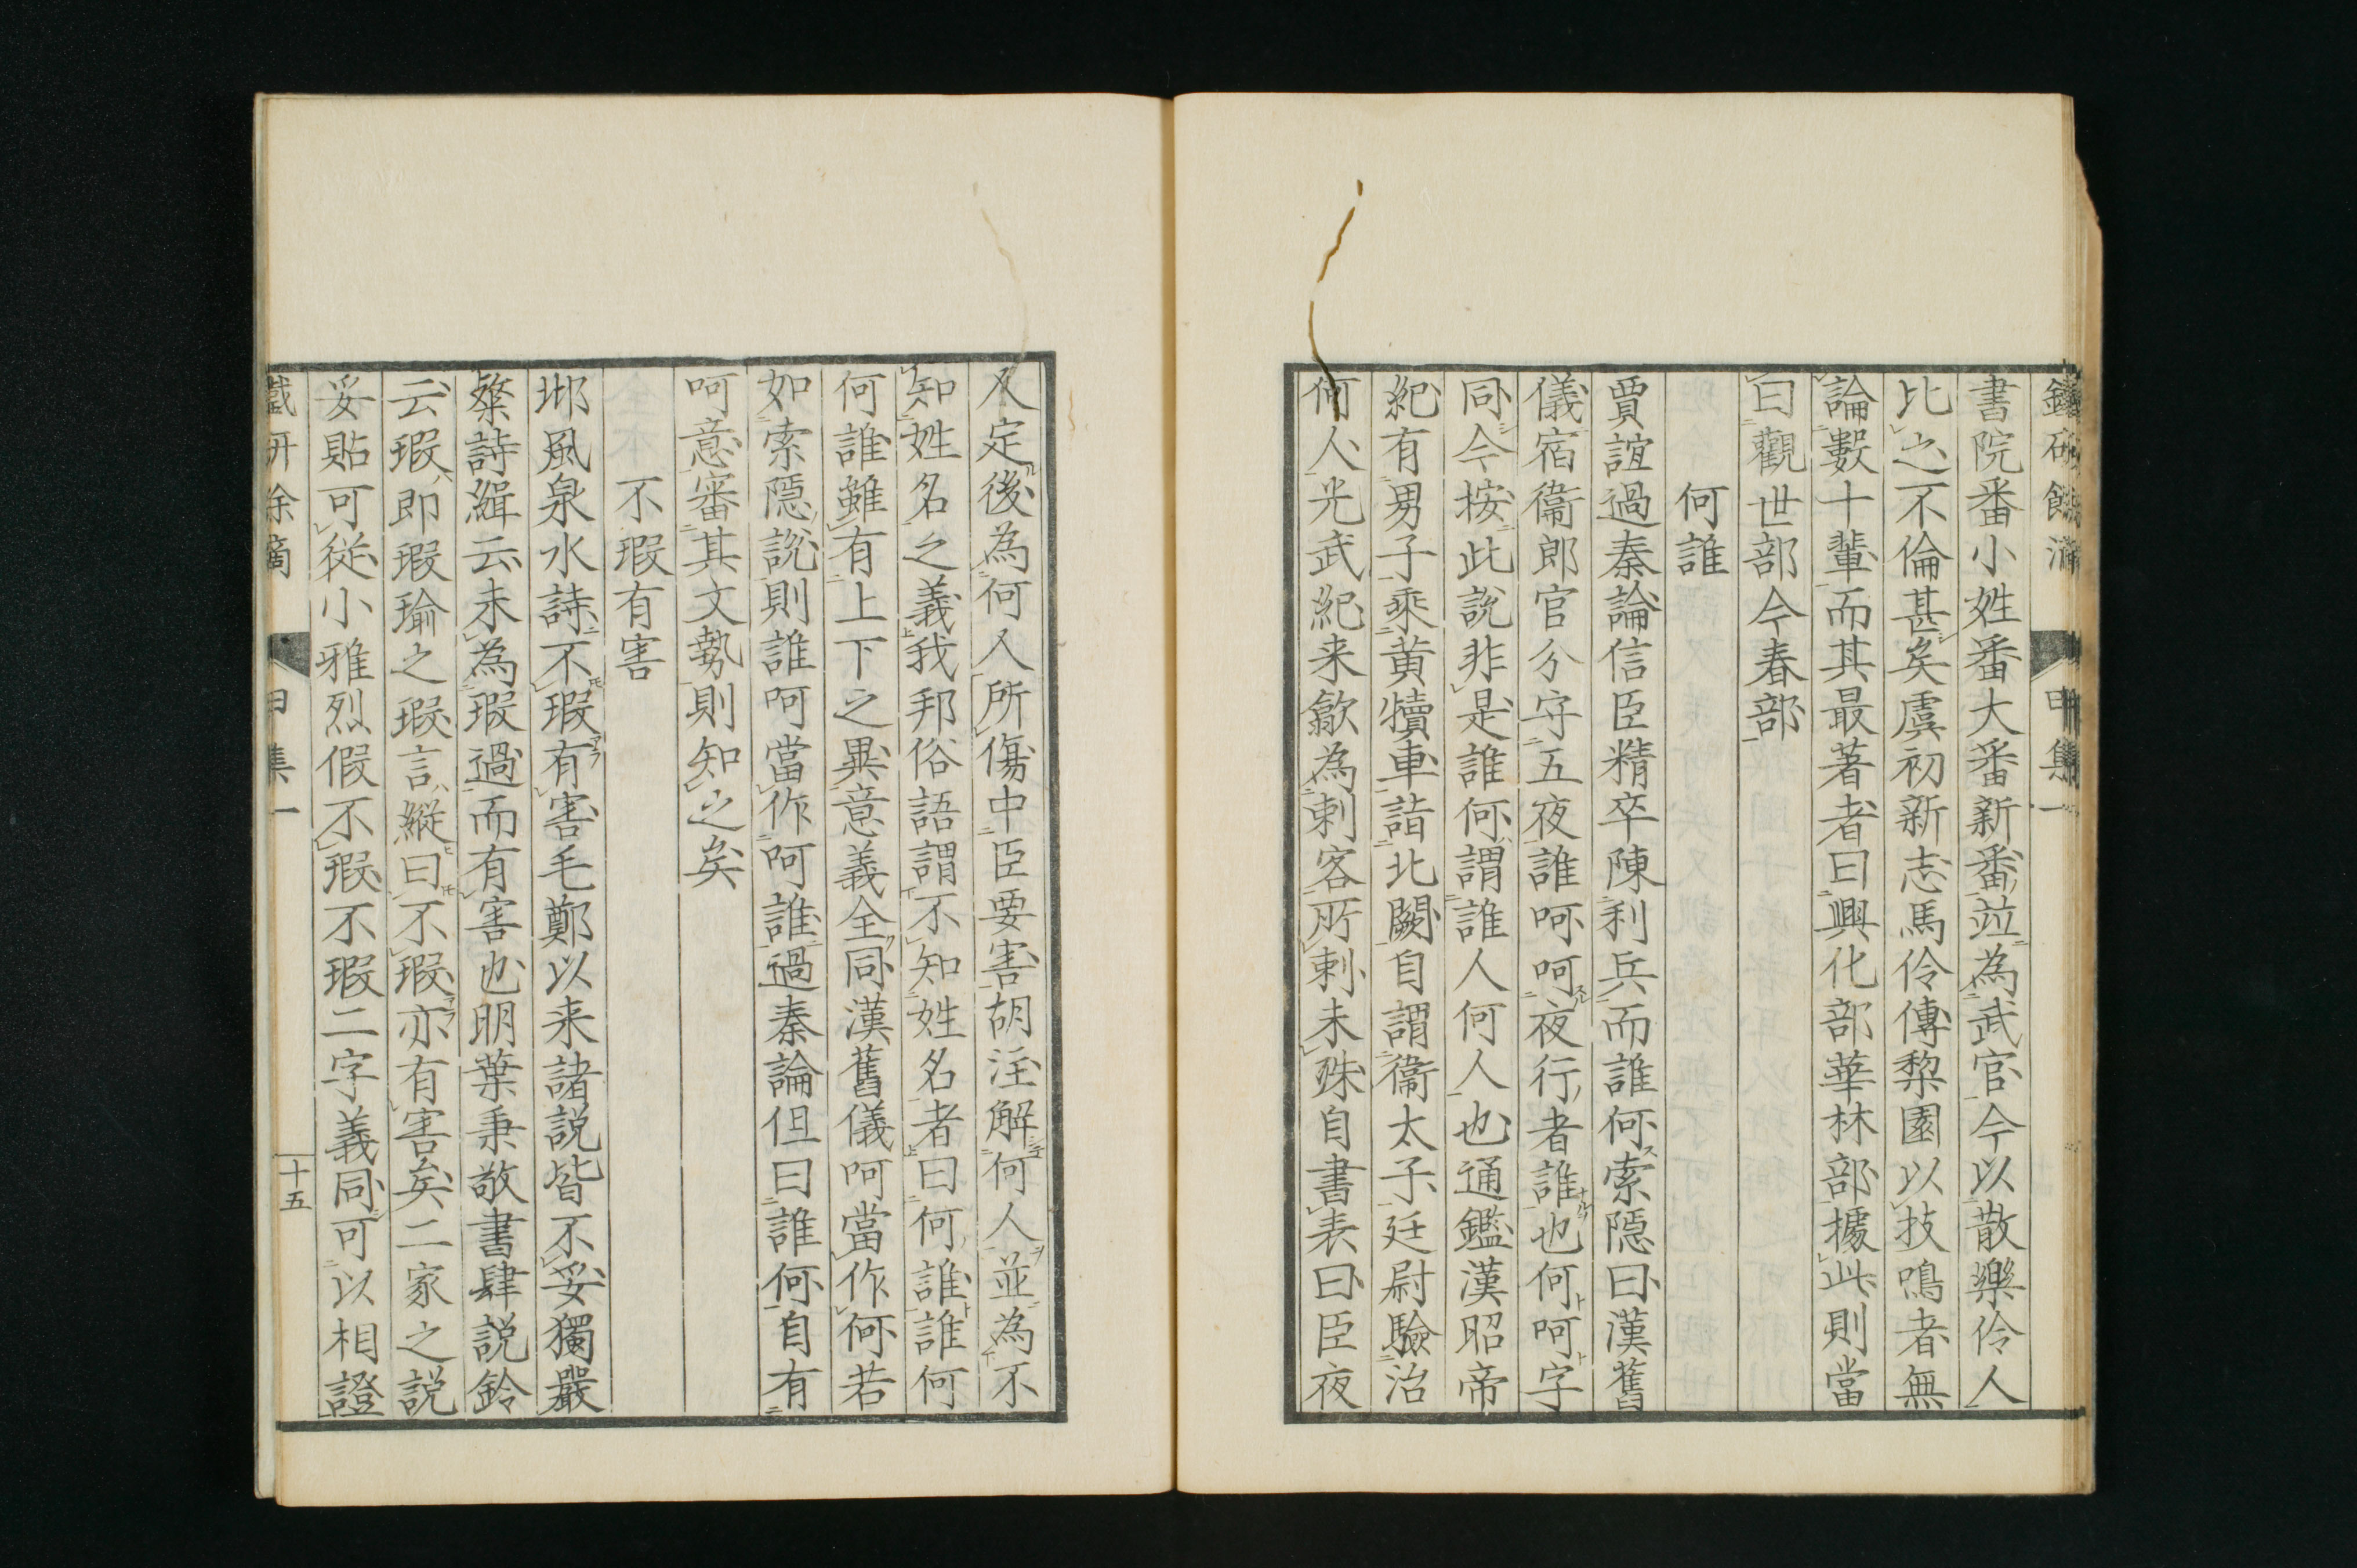 書院番小姓番大番新番竝為武官今以散樂伶人
比之不倫甚矣虞初新志馬伶傳棃園以技鳴者無
論數十輩而其最著者曰興化部華林部據此則當
曰觀世部今春部
何誰
賈誼過秦論信臣精卒陳利兵而誰何索隱曰漢舊
儀宿衞郎官分守五夜誰呵呵夜行者誰也何呵字
同今按此説非是誰何謂誰人何人也通鑑漢昭帝
紀有男子乘黄犢車詣北闕自謂衞太子廷尉驗治
何人光武紀来歙為刺客所刺未殊自書表曰臣夜
人定後為何人所傷中臣要害胡注解何人並為不
知姓名之義我邦俗語謂不知姓名者曰何誰誰何
何誰雖有上下之異意義全同漢舊儀呵當作何若
如索隱説則誰呵當作呵誰過秦論但曰誰何自有
呵意審其文勢則知之矣
不瑕有害
邶風泉水詩不瑕有害毛鄭以来諸説皆不妥獨嚴
粲詩緝云未為瑕過而有害也明葉秉敬書肆説鈴
云瑕即瑕瑜之瑕言縱曰不瑕亦有害矣二家之説
妥貼可從小雅烈假不瑕不瑕二字義同可以相證
甲集一
十五